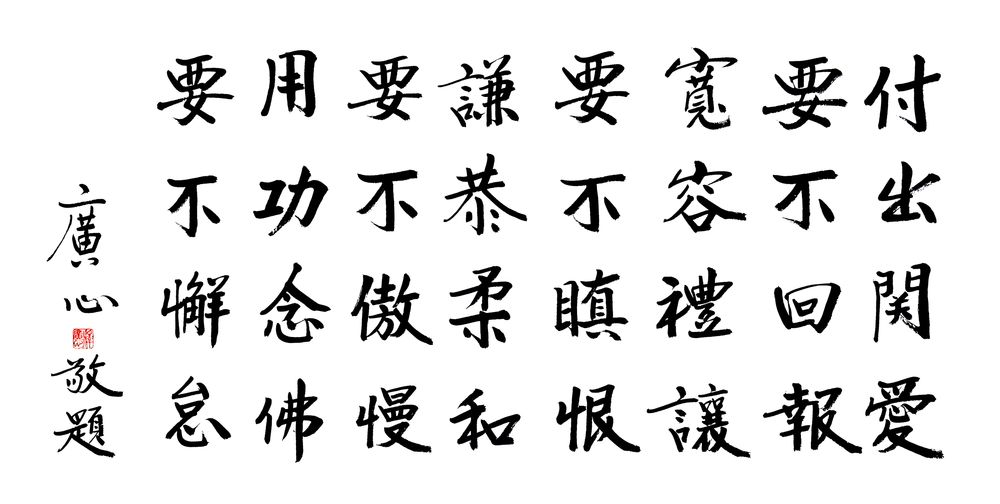 付出関愛
要不回報
寬容禮讓
要不瞋恨
謙恭柔和
要不傲慢
用功念佛
要不懈怠
廣心敬題